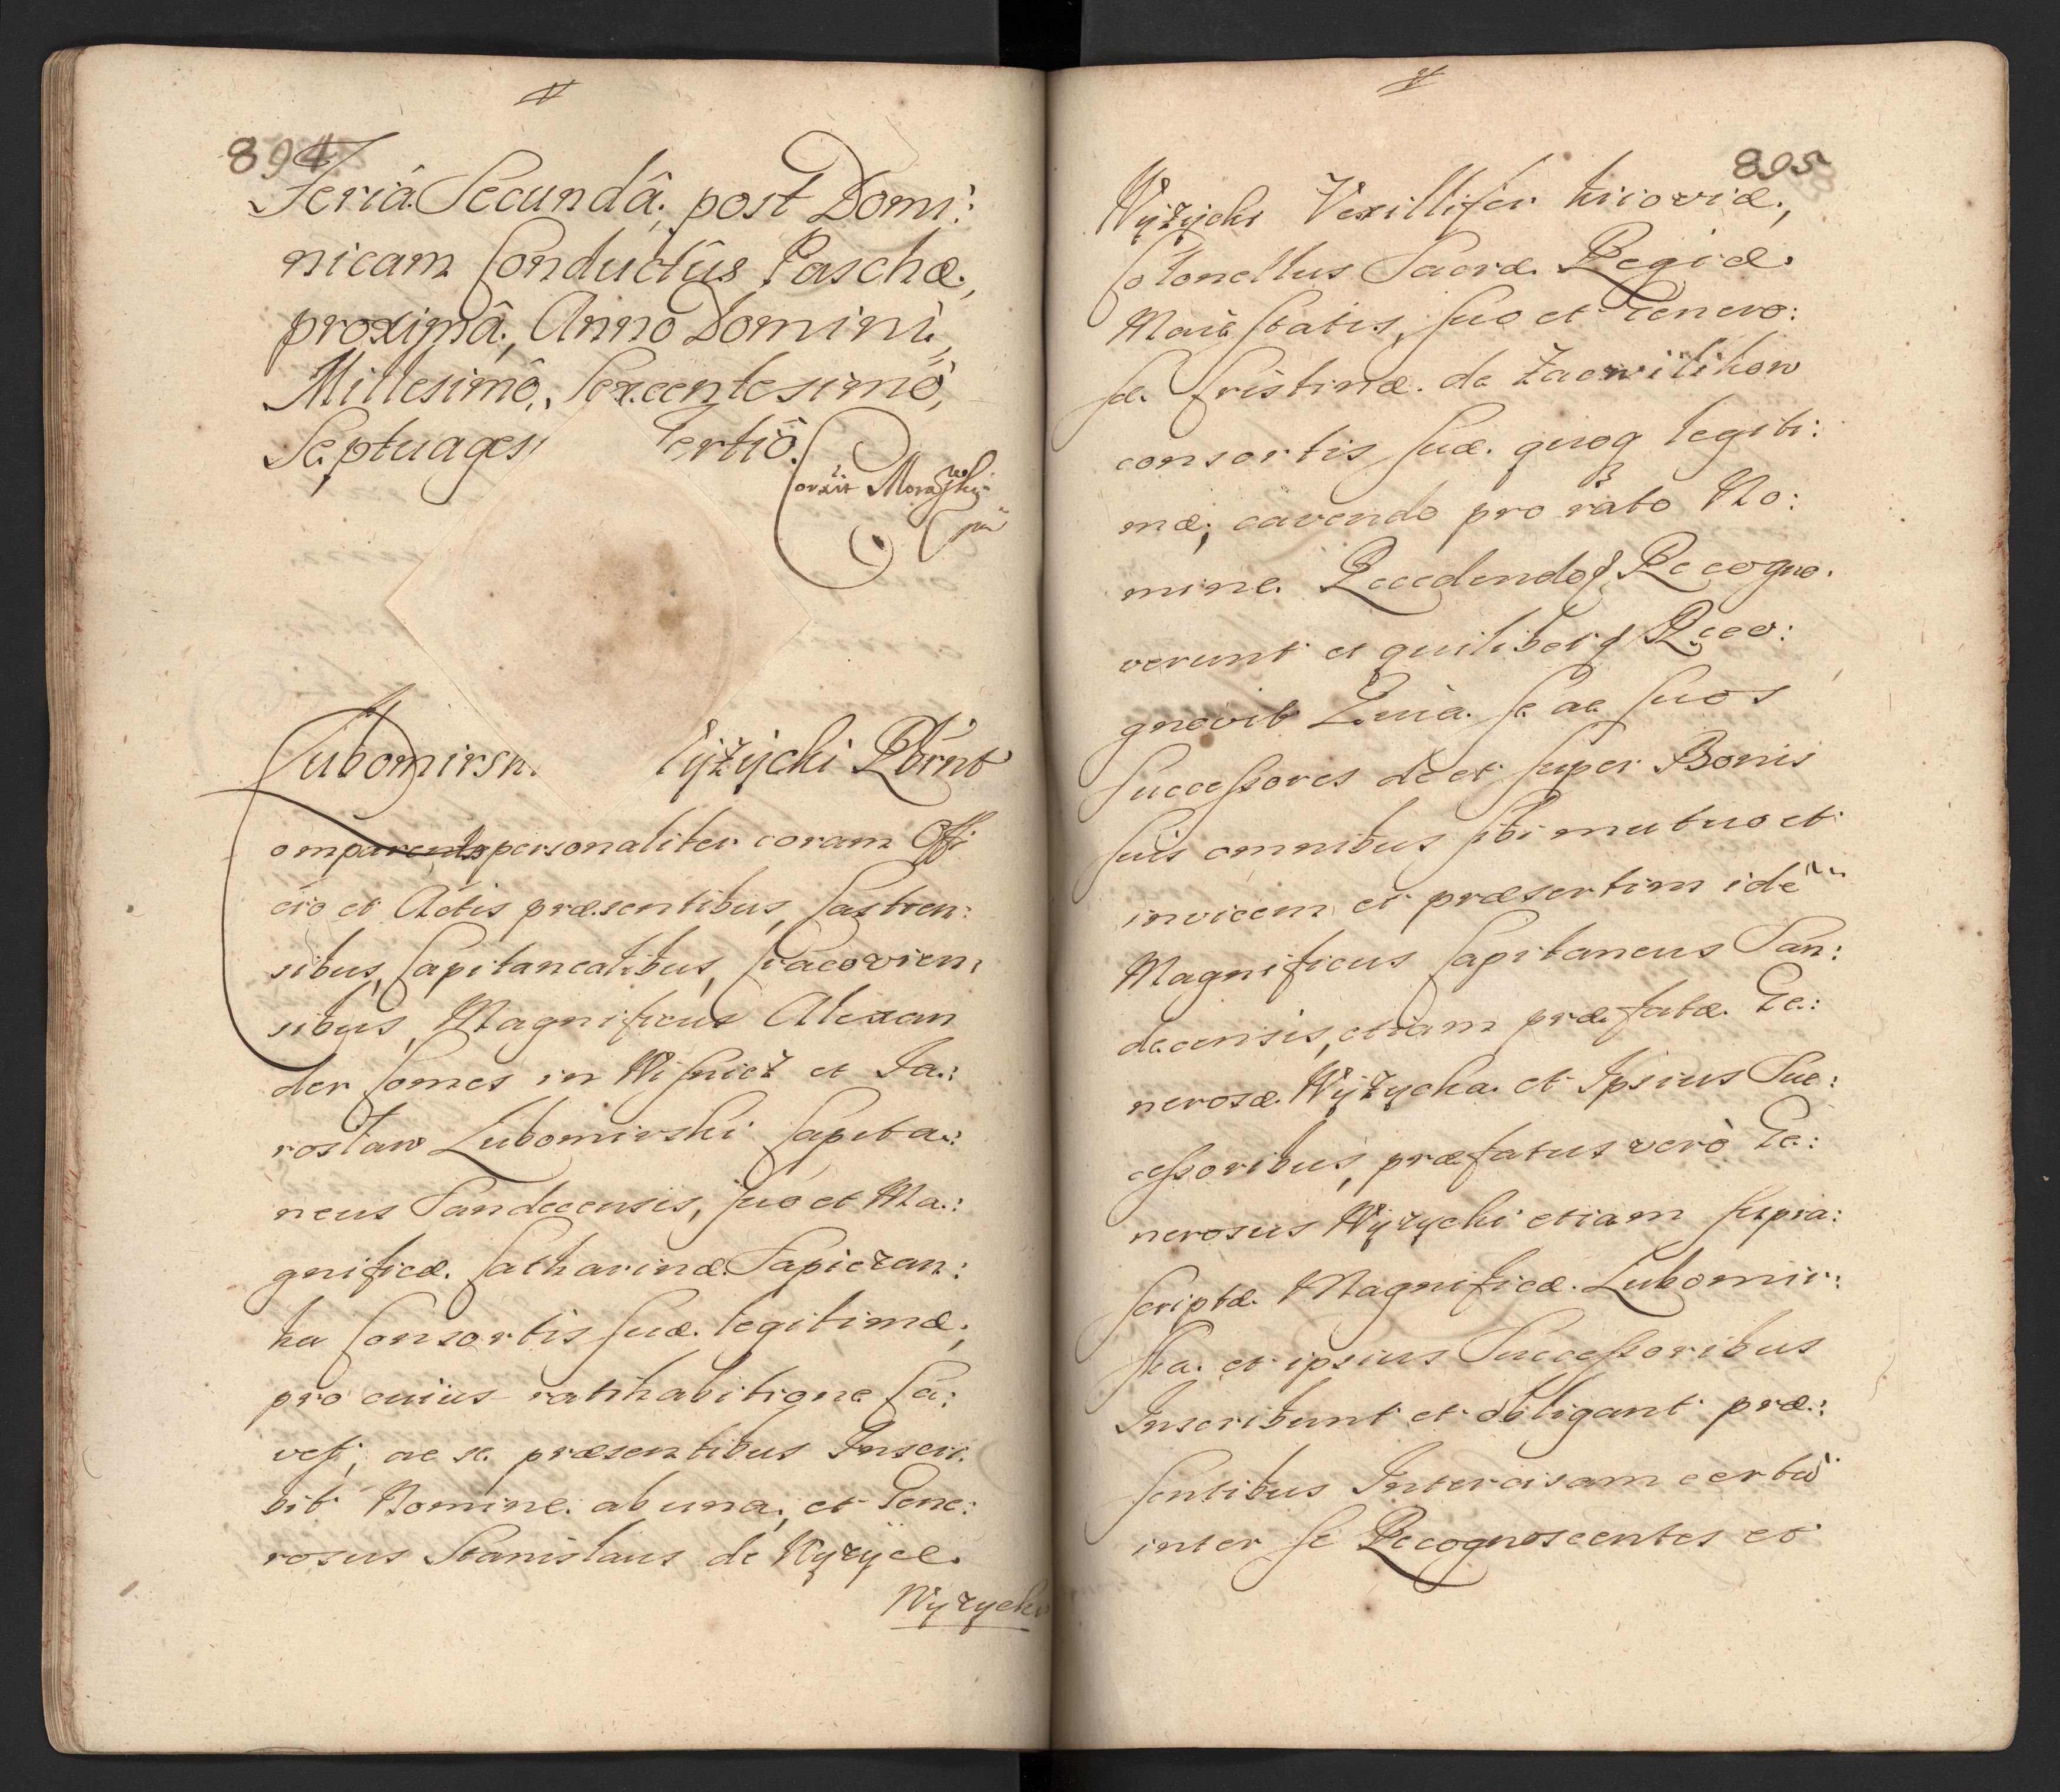 894
Feriâ Secundâ, post Domi:
nicam Conductûs Paschæ,
proximâ, Anno Domini,
Millesimô, Sexcentesimô,
Septuages ertiô.
Lubomirsk yżycki Rbrnt
omparentes personaliter coram Offi
cio et Actis præsentibus, Castren:
sibus, Capitanealibus, Cracovien:
sibus, Magnificus Alexan
der Comes in Wisnicz et Ja:
roslaw Lubomirski Capita:
neus Sandecensis, suo et Ma:
gnificæ Catharinæ Sapiezan:
ka Consortis suæ legitimæ,
pro cuius ratihabitione Ca:
vet, ac se præsentibus Inscri:
bit Nomine ab una, et Gene:
rosus Stanislaus de Wyzyce
Wyzycki
895
Wyżycki Vexillifer Kiioviæ,
Colonellus Sacræ Regiæ
Maiestatis, suo et Genero:
sæ Cristinæ de Zakwilikow
consortis suæ quoq legiti:
mæ, cavendo pro rato No:
mine Recedendo Recogno:
verunt et quilibet Reco:
gnovit Quia se ac suos
Successores de et super Bonis
suis omnibus sibi mutuo et
invicem et præsertim idem
Magnificus Capitaneus San:
decensis, etiam præfatæ Ge:
nerosæ Wyżycka et Ipsius Suc:
cessoribus, præfatus verò Ge:
nerosus Wyzycki etiam supra:
scriptæ Magnificæ Lubomir:
ska et ipsius Successoribus
Inscribunt et obligant præ:
sentibus Intercisam certã
inter se Recognoscentes et